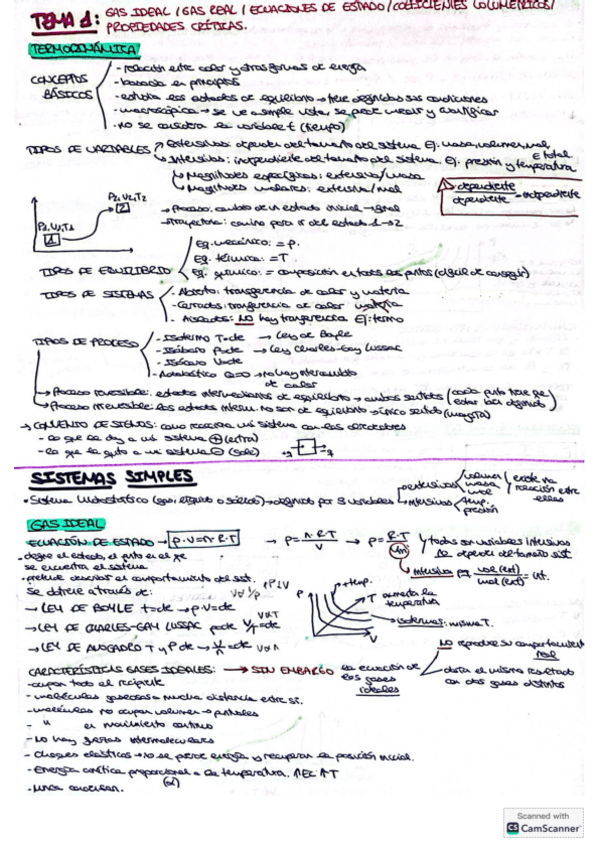 TEMA 1: GAS IDEAL / GAS REAL / ECUACIONES DE ESTADO / COEFICIENTES VOLUMETRICOS /
PROPIEDADES CRÍTICAS.
TERMODINÁMICA
CONCEPTOS BÁSICOS
- relación entre calor y otras formas de energía
- basada en principios
- estudia los estados de equilibrio → tiene definidas sus condiciones
- macroscópica → se ve a simple vista, se puede medir y cuantificar
- no se considera la variable t (tiempo)
TIPOS DE VARIABLES
Extensivas: depender del tamaño del sistema Ej: masa, volumen, mol, E total
Intensivas: independiente del tamaño del sistema. Ej: presión y temperatura
Magnitudes específicas: extensiva/masa
Magnitudes molares: extensiva/mol
dependiente
dependiente = independiente
P2, V2, T2
2
P1, V1, T1
1
→ Proceso: cambio de un estado inicial → final
→ Trayectoria: camino para ir del estado 1 → 2
TIPOS DE EQUILIBRIO
Eq. mecánico: = P.
Eq. térmico: = T.
Eq. químico: = composición en todos los puntos (difícil de conseguir)
TIPOS DE SISTEMAS
- Abierto: transferencia de calor y materia
- Cerrados: transferencia de calor materia
- Aislados: NO hay transferencia Ej: termo
TIPOS DE PROCESO
- Isotermo T=cte → Ley de Boyle
- Isóbaro P=cte → Ley Charles-Gay Lussac
- Isócoro V=cte
- Adiabático Q=0 → no hay intercambio de calor
→ Proceso reversible: estados intermedios de equilibrio → ambos sentidos (cada punto tiene
→ Proceso irreversible: los estados interm. no son de equilibrio → único sentido (mayoría)
→ CONVENIO DE SIGNOS: como reacciona mi sistema con los alrededores
- lo que le doy a mi sistema ⊕ (entra)
- lo que le quito a mi sistema ⊖ (sale)
SISTEMAS SIMPLES
• Sistema hidrostático (gas, líquido o sólido) → definido por 3 variables
extensivas
volumen
masa
mol
intensivas
temp.
presión
existe una relación entre ellas
GAS IDEAL
ECUACIÓN DE ESTADO → P·V=n·R·T → P= n·R·T / V → P= R·T / Vm
todas son variables intensivas
No depender del tamaño sist.
intensiva pq vol (ext) / mol (ext) = int.
se encuentra el sistema
- pretende describir el comportamiento del sist.
Se obtiene a través de:
→ LEY DE BOYLE t=cte → P·V=cte
→ LEY DE CHARLES-GAY LUSSAC P=cte V/T=cte
→ LEY DE AVOGADRO T y P cte → V/n=cte
P
V
+ temp.
T aumenta la temperatura
isotermas: misma T.
CARACTERÍSTICAS GASES IDEALES: → SIN EMBARGO la ecuación de los gases ideales
NO reproduce su comportamiento real
daría el mismo resultado con dos gases distintos
- ocupan todo el recipiente
- moléculas gaseosas a mucha distancia entre sí.
- moléculas no ocupan volumen → puntuales
- " en movimiento continuo
- No hay fuerzas intermoleculares
- Choques elásticos → no se pierde energía y recuperan la posición inicial.
- Energía cinética proporcional a la temperatura. ↑EC ↑T
- nunca condensan.
Scanned with
CS CamScanner